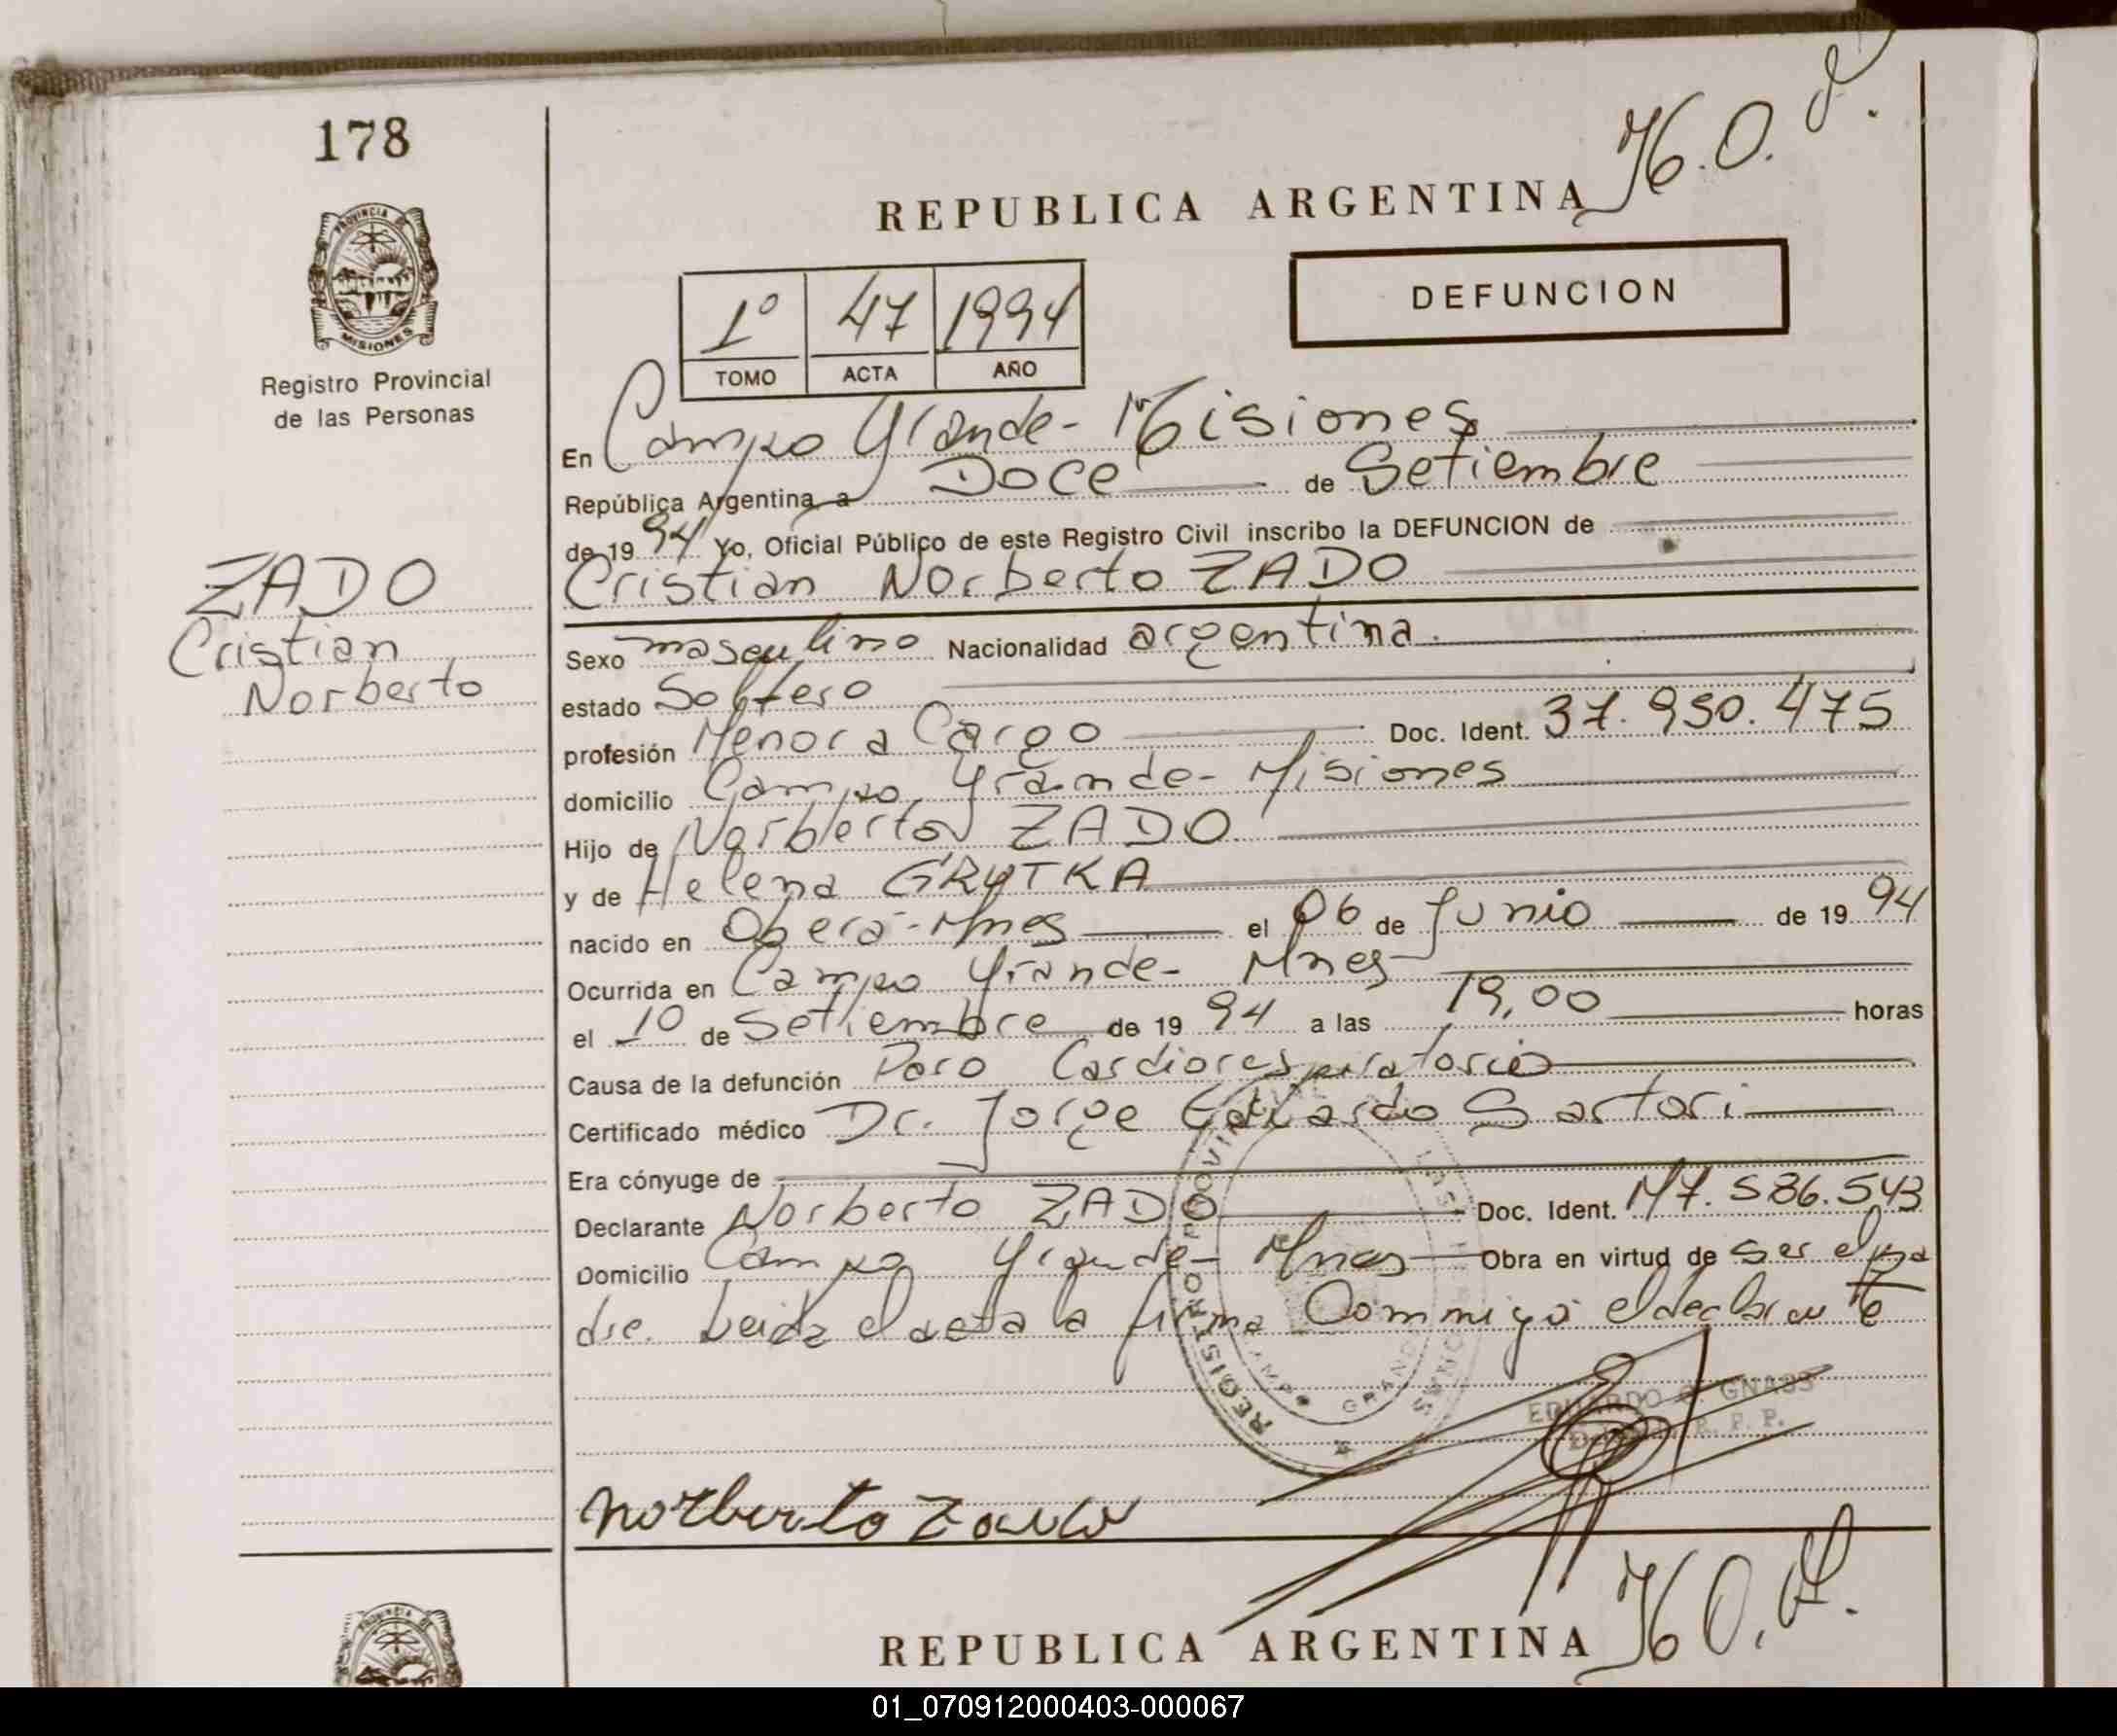 178
PROVINCIA DE
MISIONES
Registro Provincial
de las Personas
ZADO
Cristian
Norberto
REPUBLICA ARGENTINA
DEFUNCION
1º 47 1994
TOMO ACTA AÑO
En Campo Grande - Misiones
República Argentina a Doce de Setiembre
de 19 94 Yo, Oficial Público de este Registro Civil inscribo la DEFUNCION de
Cristian Norberto ZADO
Sexo masculino Nacionalidad argentina.
estado Soltero
profesión Menor a Cargo Doc. Ident. 37.950.475
domicilio Campo Grande - Misiones
Hijo de Norberto ZADO
y de Helena GRYTKA
nacido en Oberá - Mnes el 06 de Junio de 19 94
Ocurrida en Campo Grande - Mnes
el 10 de Setiembre de 19 94 a las 19,00 horas
Causa de la defunción Paro Cardiorespiratorio
Certificado médico Dr. Jorge Eduardo Sartori
Era cónyuge de
Declarante Norberto ZADO Doc. Ident. M7.586.543
Domicilio Campo Grande - Mnes Obra en virtud de Ser el pa
dre. Leida el acta la firma Conmigo el declarante
EDUARDO GNASS
R. P. P.
Norberto Zado
REPUBLICA ARGENTINA
01_070912000403-000067